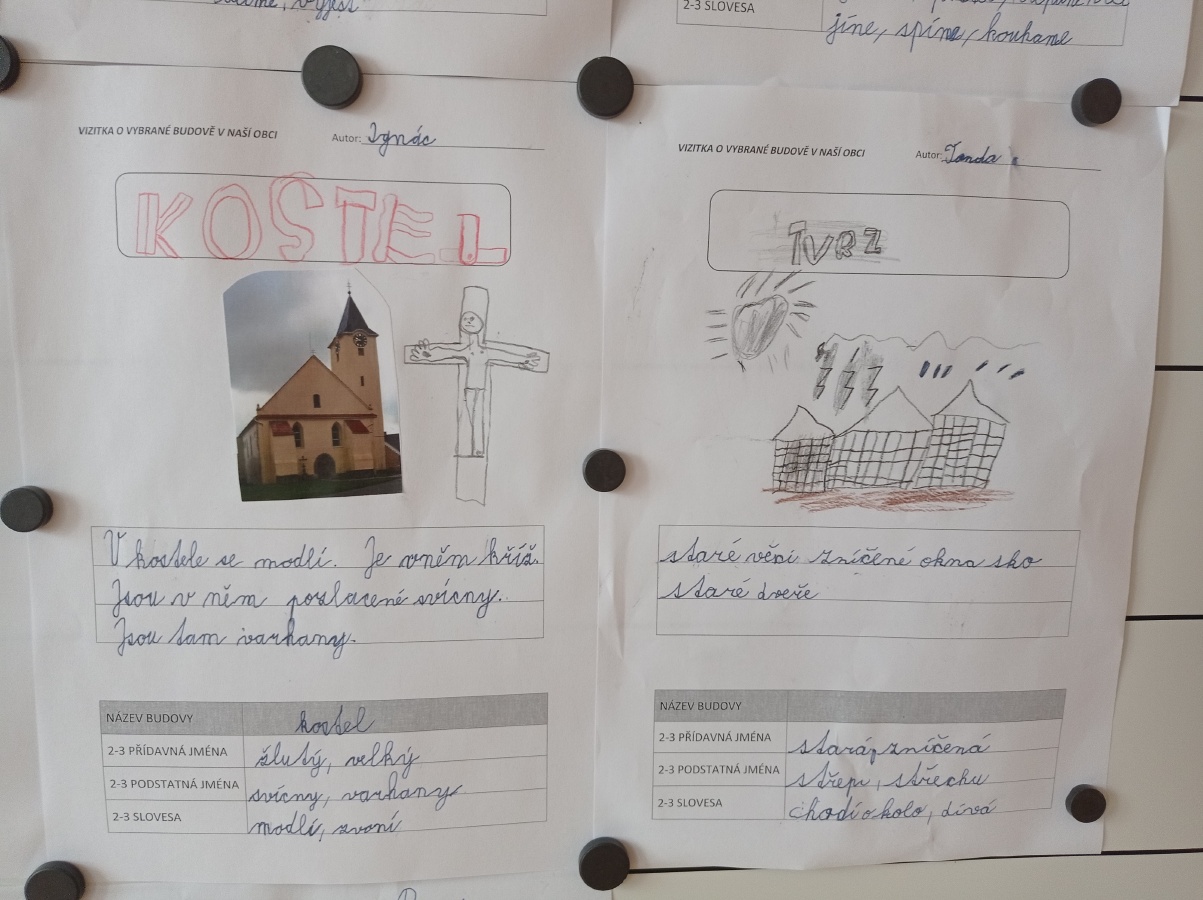 2-3 SLOVESA
jíne, spíme, koukame
VIZITKA O VYBRANÉ BUDOVĚ V NAŠÍ OBCI
Autor: Ignác
KOSTEL
V kostele se modlí. Je vněm kříž.
Jsou v něm pozlacené svícny.
Jsou tam varhany.
NÁZEV BUDOVY kostel
2-3 PŘÍDAVNÁ JMÉNA žlutý, velký
2-3 PODSTATNÁ JMÉNA svícny, varhany
2-3 SLOVESA modlí, zvoní
VIZITKA O VYBRANÉ BUDOVĚ V NAŠÍ OBCI
Autor: Janda
TVRZ
staré věci zníčené okna sko
staré dveře
NÁZEV BUDOVY
2-3 PŘÍDAVNÁ JMÉNA stará, zníčená
2-3 PODSTATNÁ JMÉNA střepi, střechu
2-3 SLOVESA chodí okolo, dívá